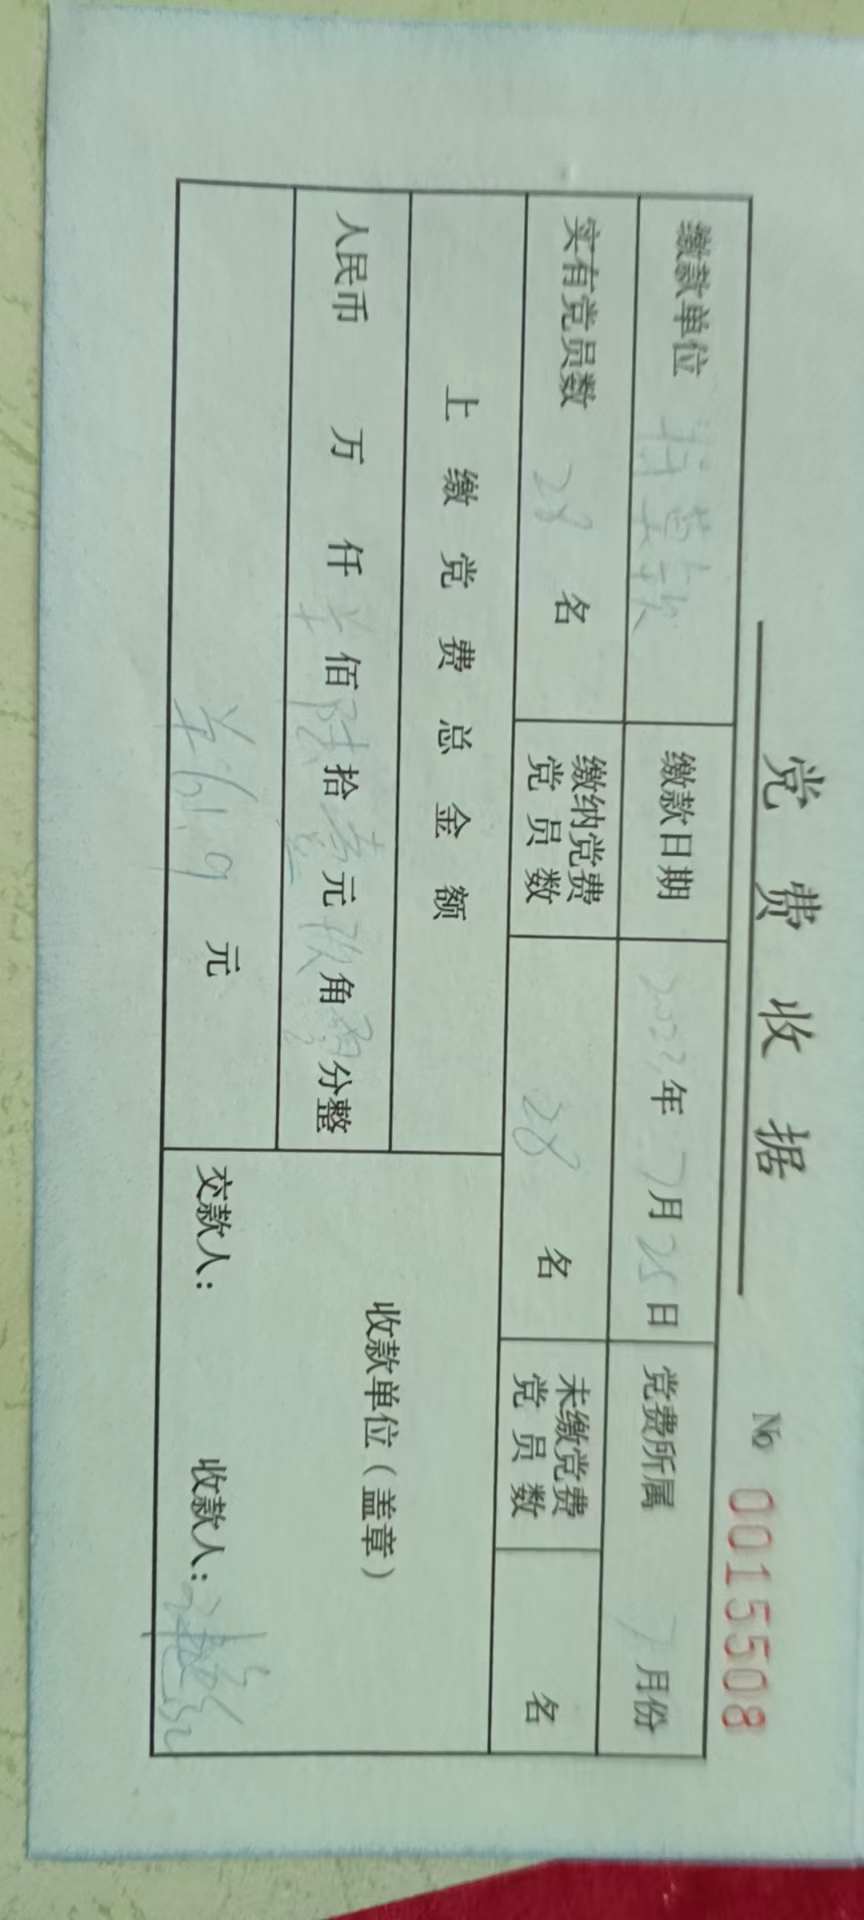 党费收据
№ 0015508
缴款单位 缴款日期 2023年7月25日 党费所属 7月份
实有党员数 28 名 缴纳党费党员数 28 名 未缴党费党员数 名
上缴党费总金额
人民币 万 仟 佰陆拾壹元玖角零分整
¥61.9 元
收款单位（盖章）
交款人： 收款人：